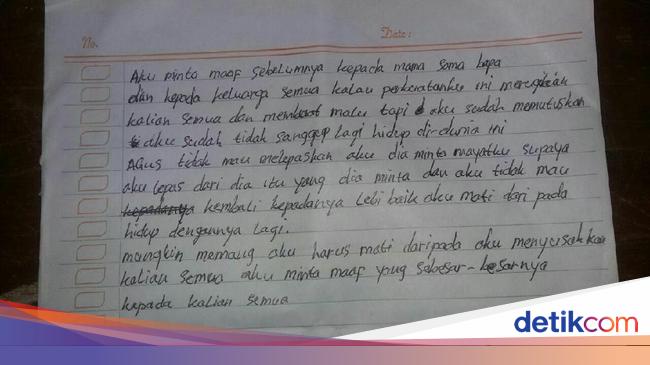 No.
Date:
Aku minta maaf sebelumnya kepada mama sama bapa
dan kepada keluarga semua kalau perbuatanku ini merugikan
kalian semua dan membuat malu tapi aku sudah memutuskan
aku sudah tidak sanggup lagi hidup di dunia ini
Agus tidak mau melepaskan aku dia minta mayatku supaya
aku lepas dari dia itu yang dia minta dan aku tidak mau
kembali kepadanya lebi baik aku mati dari pada
hidup dengannya lagi.
mungkin memang aku harus mati daripada aku menyusahkan
kalian semua aku minta maaf yang sebesar-besarnya
kepada kalian semua
detikcom